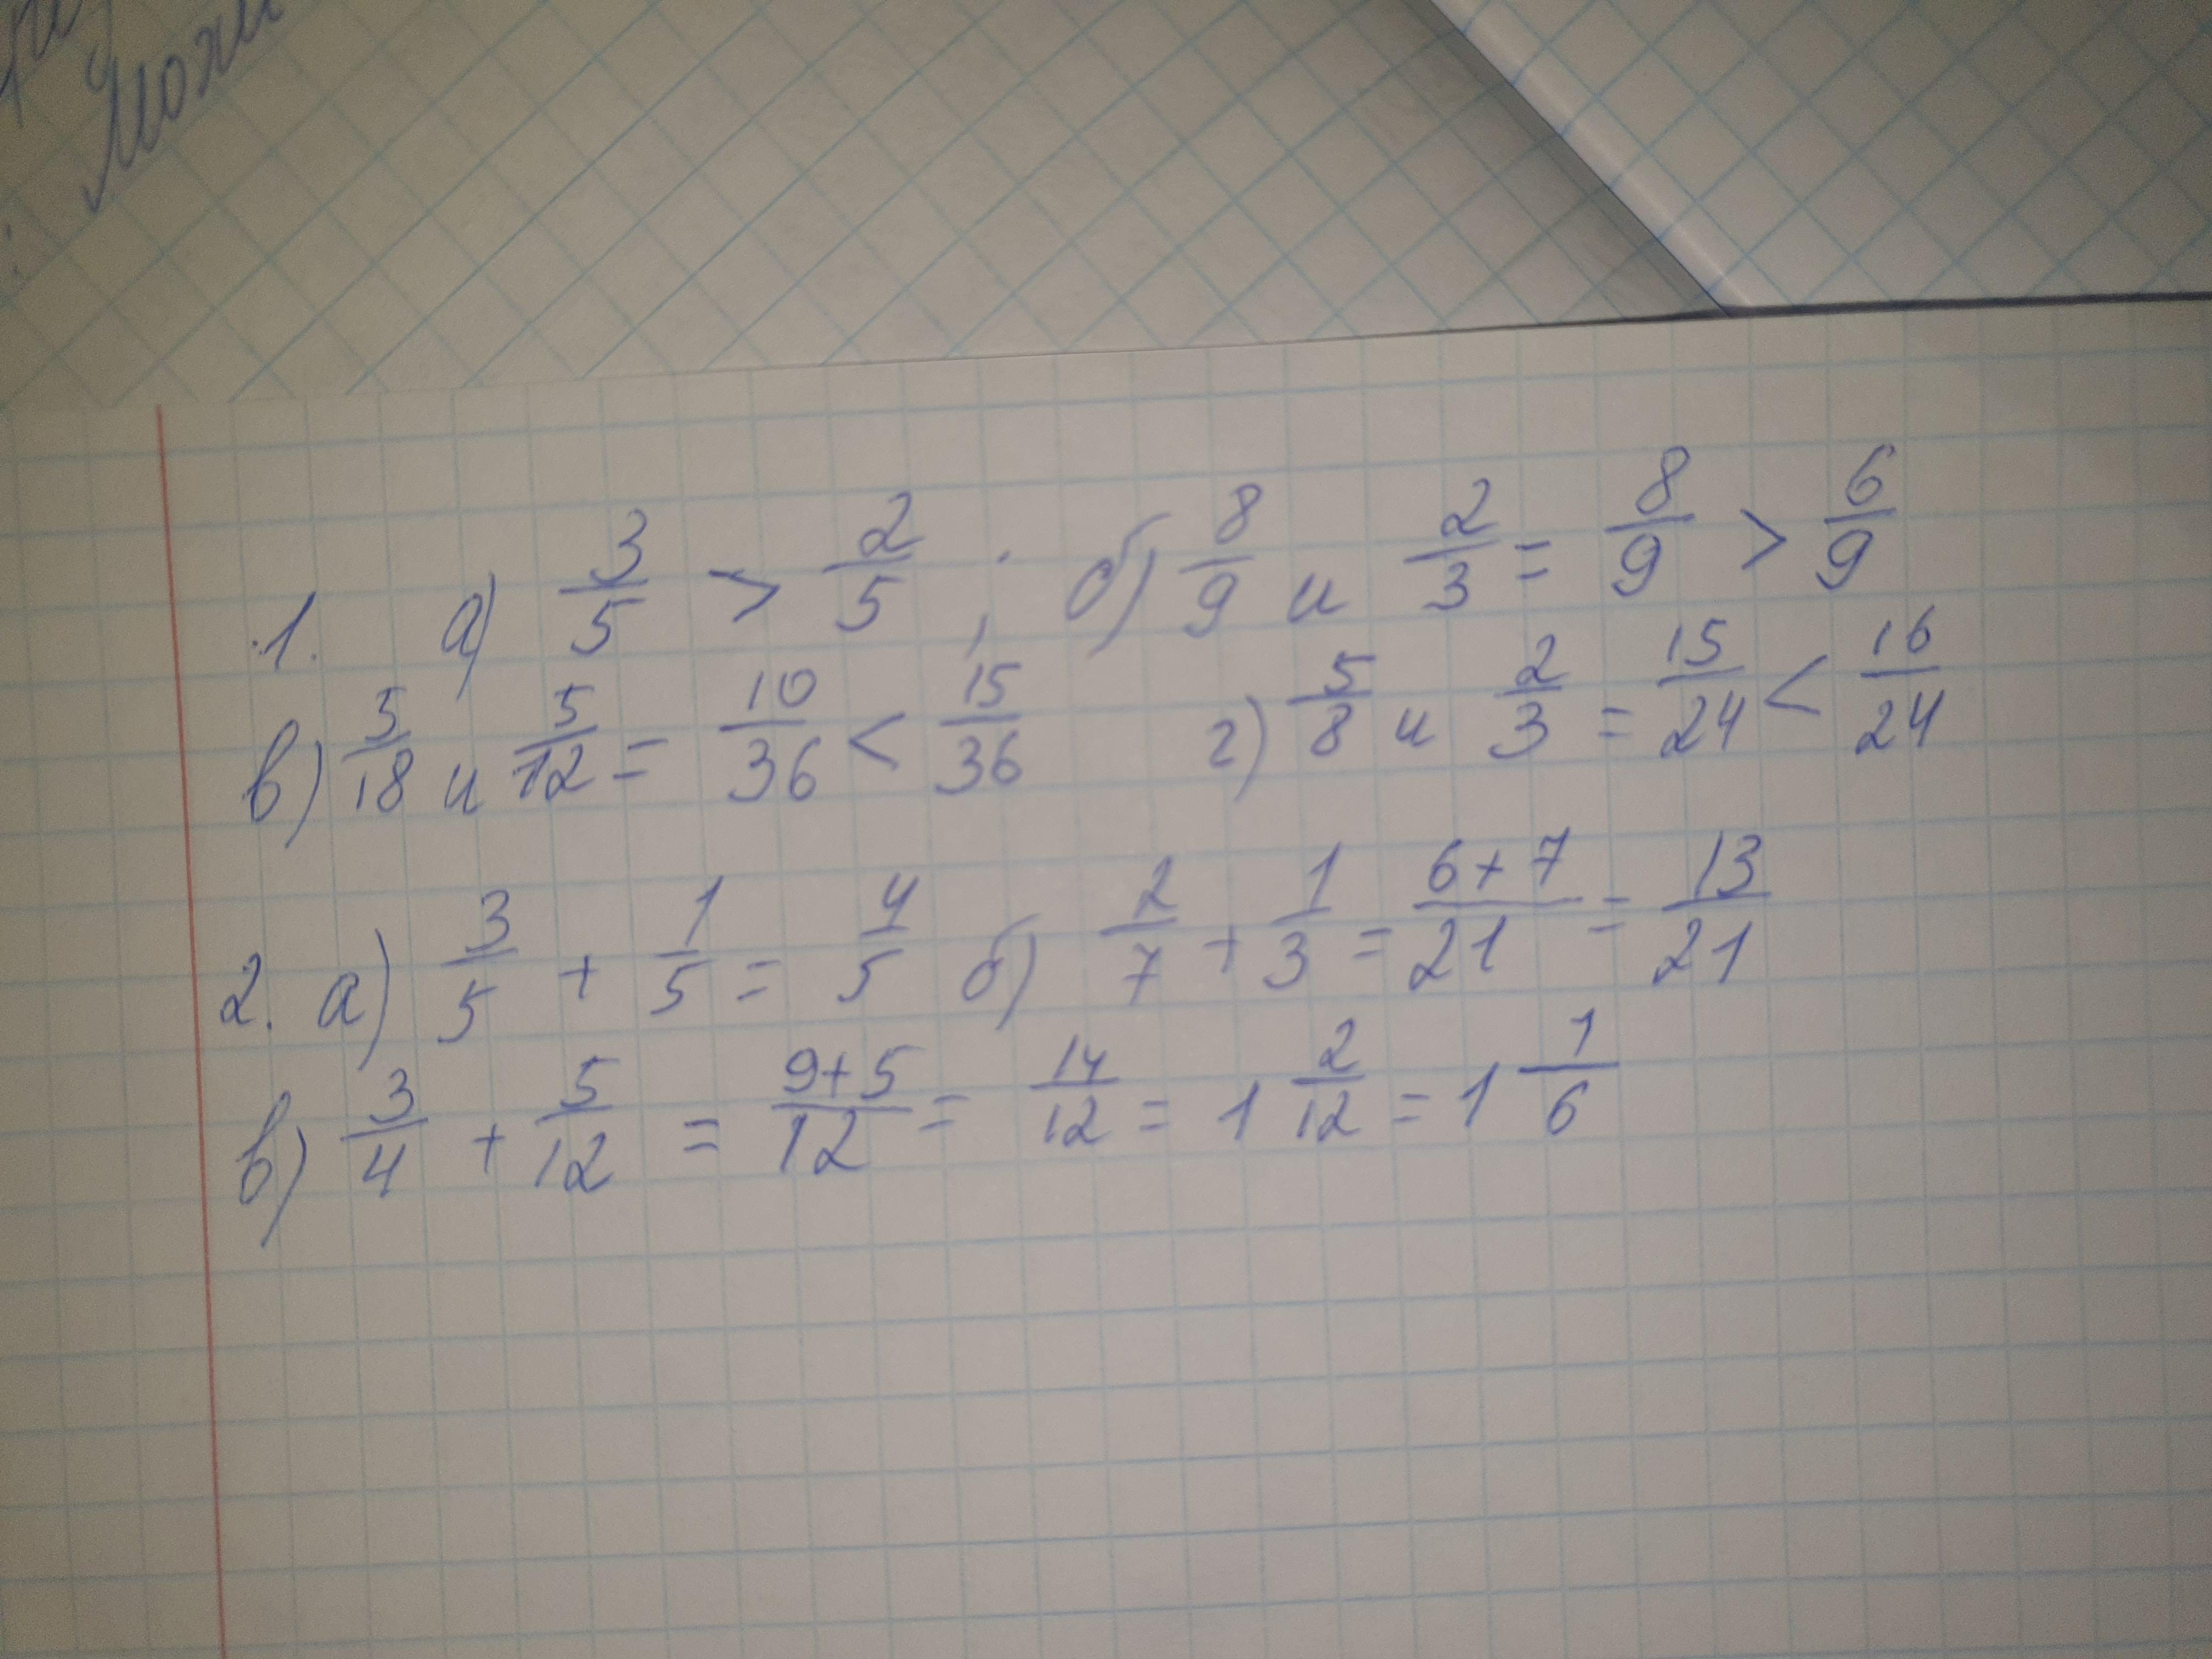 Мож
1. а) 3/5 > 2/5 ; б) 8/9 и 2/3 = 8/9 > 6/9
в) 5/18 и 5/12 = 10/36 < 15/36 г) 5/8 и 2/3 = 15/24 < 16/24
2. а) 3/5 + 1/5 = 4/5 б) 2/7 + 1/3 = 6+7/21 = 13/21
в) 3/4 + 5/12 = 9+5/12 = 14/12 = 1 2/12 = 1 1/6